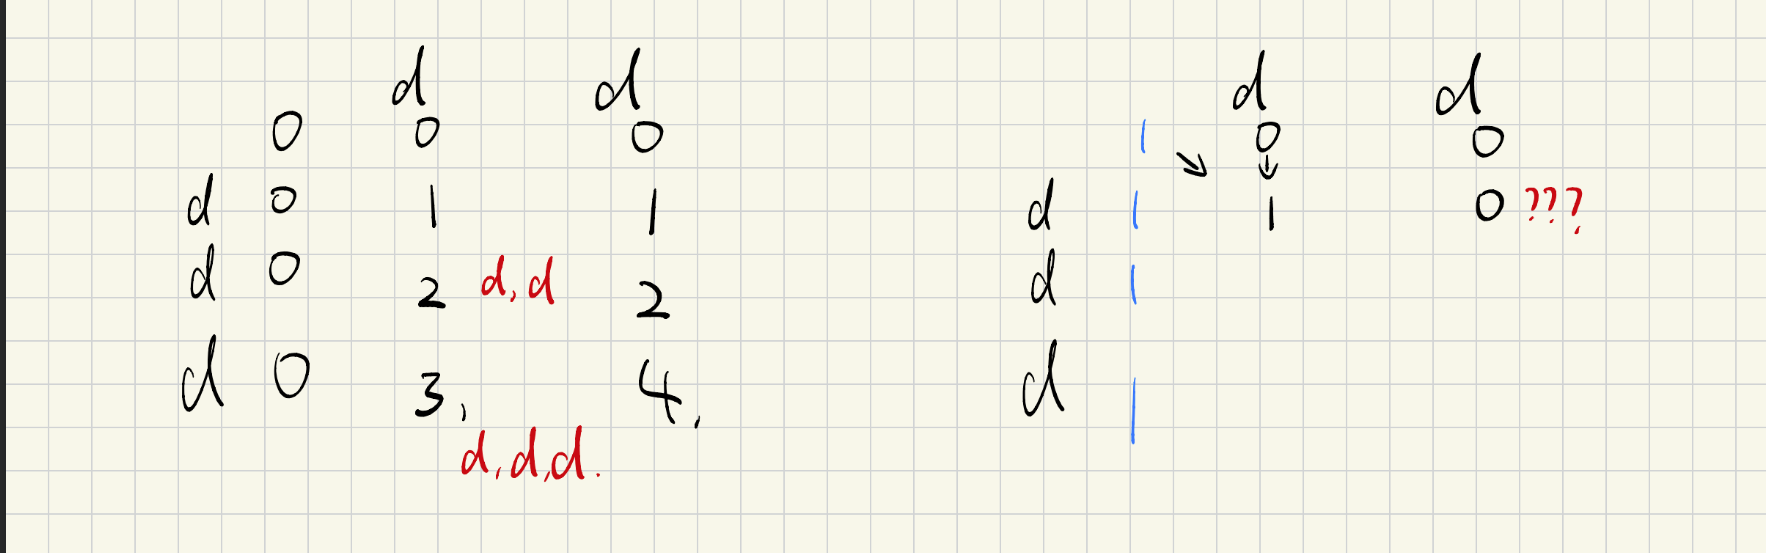 d d
0 0 0
d 0 1 1
d 0 2 d,d 2
d 0 3, 4,
d,d,d.
d d
1 ↘ 0 ↓ 0
d 1 1 0 ???
d 1
d 1